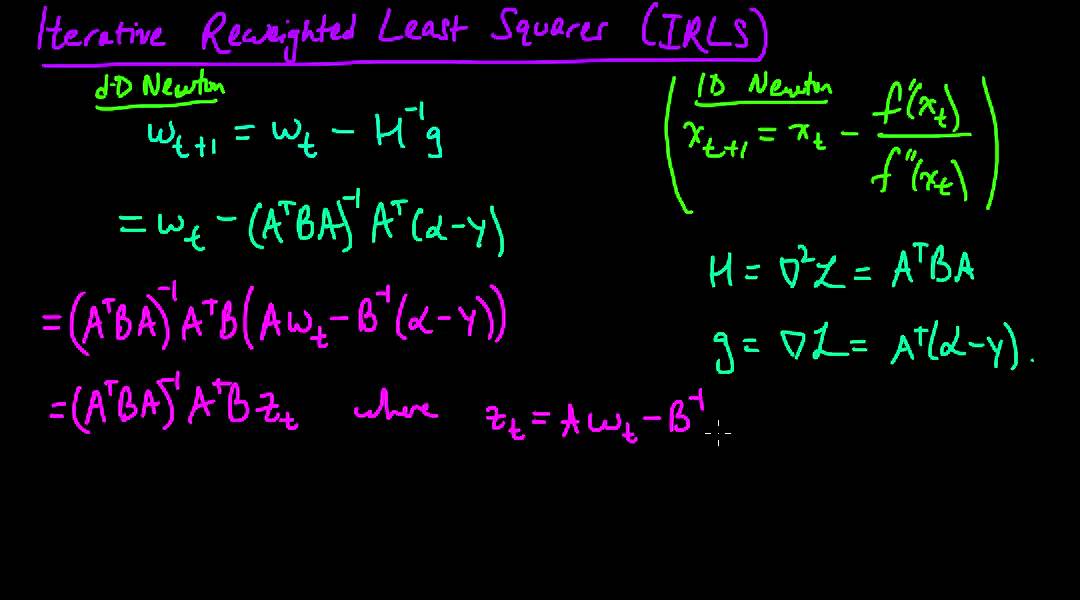 Iterative Reweighted Least Squares (IRLS)
d-D Newton
w_{t+1} = w_t - H^{-1}g
= w_t - (A^TBA)^{-1} A^T(α-y)
= (A^TBA)^{-1} A^TB(Aw_t - B^{-1}(α-y))
= (A^TBA)^{-1} A^TB z_t where z_t = Aw_t - B^{-1}
1D Newton
(x_{t+1} = x_t - f'(x_t) / f''(x_t))
H = ∇²ℒ = A^TBA
g = ∇ℒ = A^T(α-y).